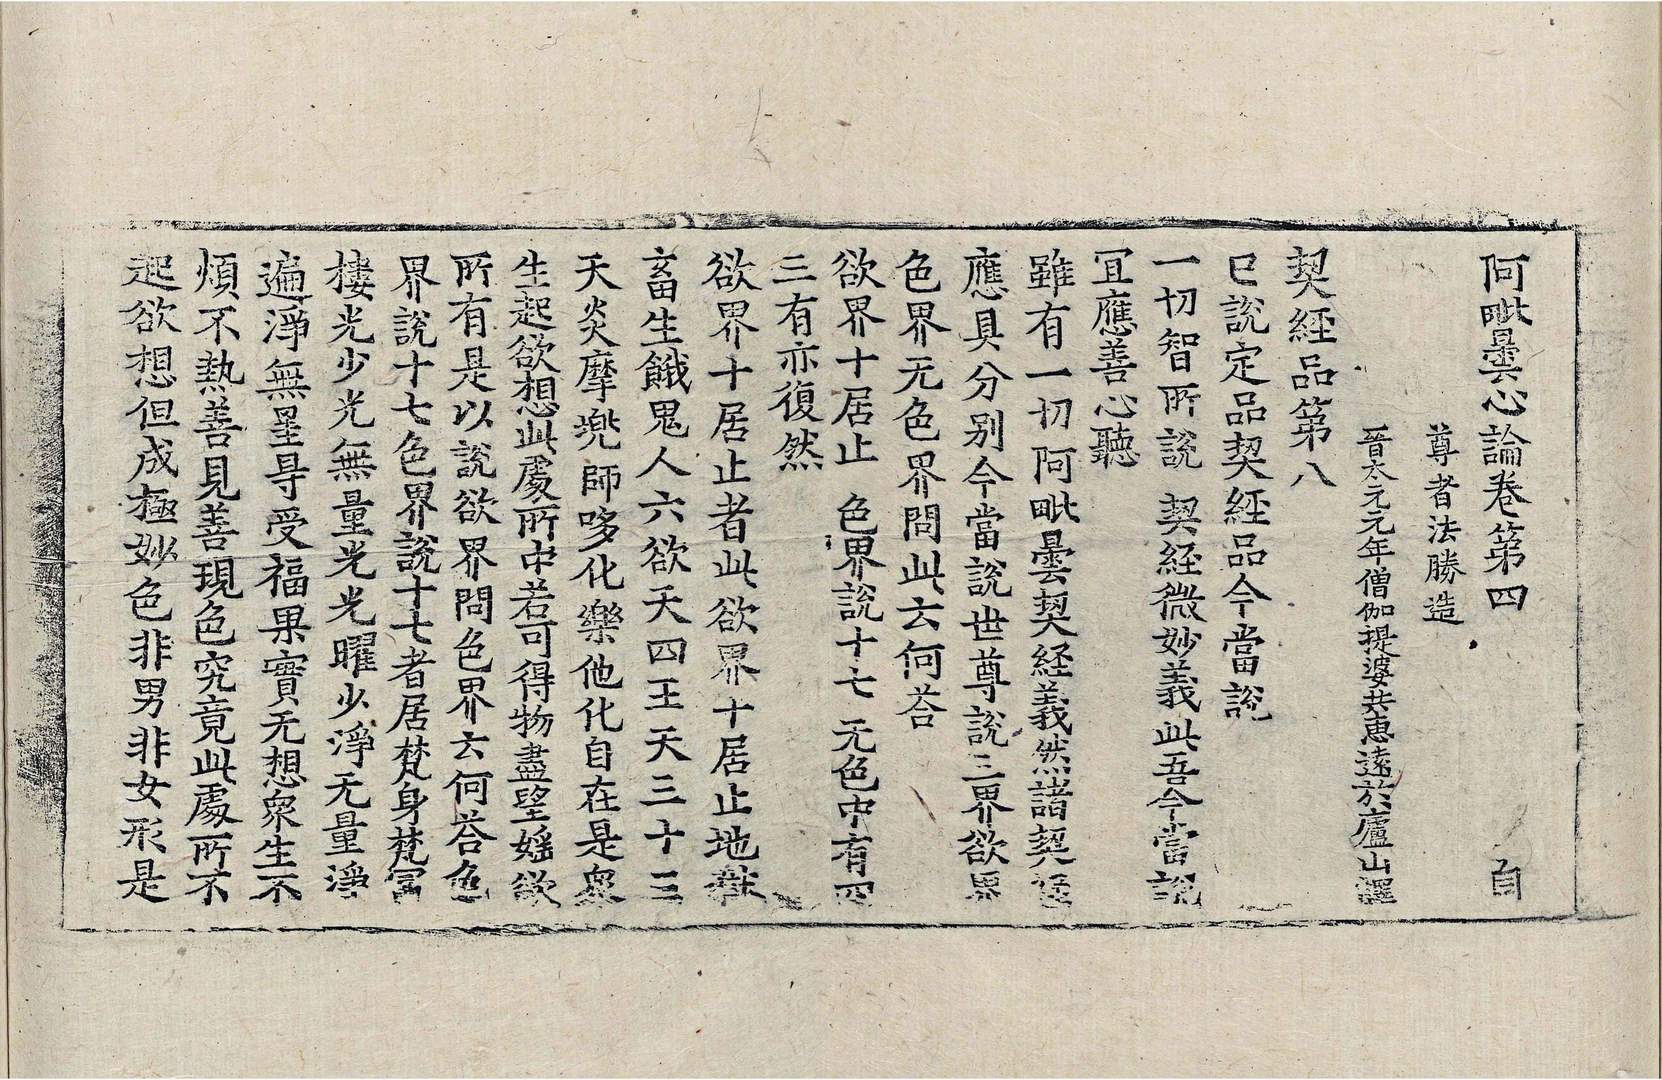 阿毗曇心論卷第四　自
尊者法勝造
晉太元元年僧伽提婆共惠遠於廬山譯
契經品第八
已說定品契經品今當說
一切智所說　契經微妙義此吾今當說
冝應善心聽
雖有一切阿毗曇契經義然諸契經
應具分別今當說世尊說三界欲界
色界无色界問此云何荅
欲界十居止　色界說十七　无色中有四
三有亦復然
欲界十居止者此欲界十居止地獄
畜生餓鬼人六欲天四王天三十三
天炎摩兜師哆化樂他化自在是衆
生起欲想此處所中若可得物盡望婬欲
所有是以說欲界問色界云何荅色
界說十七色界說十七者居梵身梵富
樓光少光無量光光曜少淨无量淨
遍淨無量㝵受福果實无想衆生不
煩不熱善見善現色究竟此處所不
起欲想但成極妙色非男非女形是